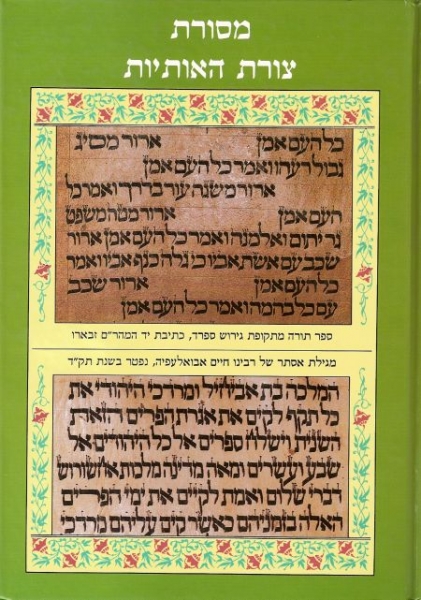 מסורת
צורת האותיות
כל העם אמן ארור מסיג
גבול רעהו ואמר כל העם אמן
ארור משגה עור בדרך ואמר כל
העם אמן ארור מטה משפט
גר יתום ואלמנה ואמר כל העם אמן ארור
שכב עם אשת אביו כי גלה כנף אביו ואמר
כל העם אמן ארור שכב
עם כל בהמה ואמר כל העם אמן
ספר תורה מתקופת גירוש ספרד, כתיבת יד המהר"ם זבארו
מגילת אסתר של רבינו חיים אבואלעפיה, נפטר בשנת תק"ד
המלכה בת אביחיל ומרדכי היהודי את
כל תקף לקים את אגרת הפרים הזאת
השנית וישלח ספרים אל כל היהודים אל
שבע ועשרים ומאה מדינה מלכות אחשורוש
דברי שלום ואמת לקיים את ימי הפרים
האלה בזמניהם כאשר קים עליהם מרדכי